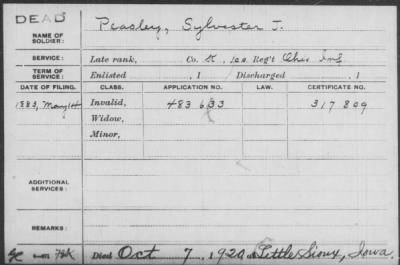 DEAD
NAME OF SOLDIER: Peasley, Sylvester J.
SERVICE: Late rank, Co. K, 120. Reg't Ohio Inf
TERM OF SERVICE: Enlisted , 1 Discharged , 1
DATE OF FILING. CLASS. APPLICATION NO. LAW. CERTIFICATE NO.
1883, May 14 Invalid, 483 633 317 809
Widow,
Minor,
ADDITIONAL SERVICES:
REMARKS:
Died Oct 7, 1920 at Little Sioux, Iowa.